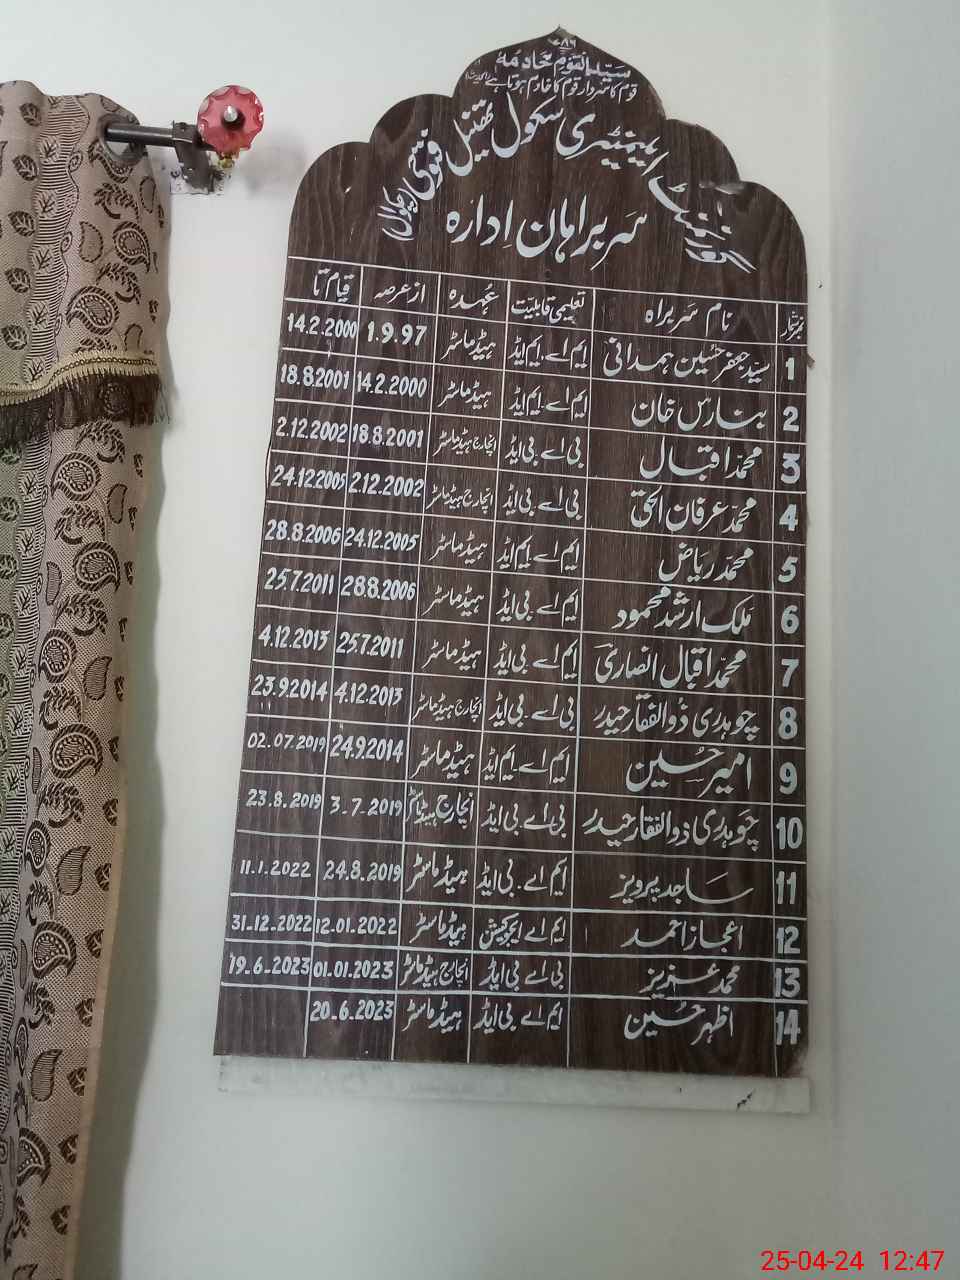 ۷۸۶
سَیِّدُ القَومِ خَادِمُهُم
قوم کا سردار قوم کا خادم ہوتا ہے (الحدیث)
گورنمنٹ ایلیمنٹری سکول تھنیل فتوحی (چکوال)
سربراہان اِدارہ
نمبر شمار نام سربراہ تعلیمی قابلیت عُہدہ از عرصہ قیام تا
1 سیّد جعفر حُسین ہمدانی ایم اے۔ایم ایڈ ہیڈ ماسٹر 1.9.97 14.2.2000
2 بنارس خان ایم اے۔ایم ایڈ ہیڈ ماسٹر 14.2.2000 18.8.2001
3 محمّد اقبال بی اے۔بی ایڈ انچارج ہیڈ ماسٹر 18.8.2001 2.12.2002
4 محمّد عرفان الحق بی اے۔بی ایڈ انچارج ہیڈ ماسٹر 2.12.2002 24.12.2005
5 محمّد ریاض ایم اے۔ایم ایڈ ہیڈ ماسٹر 24.12.2005 28.8.2006
6 ملک ارشد محمود ایم اے۔بی ایڈ ہیڈ ماسٹر 28.8.2006 25.7.2011
7 محمّد اقبال انصاری ایم اے۔بی ایڈ ہیڈ ماسٹر 25.7.2011 4.12.2013
8 چوہدری ذوالفقار حیدر بی اے۔بی ایڈ انچارج ہیڈ ماسٹر 4.12.2013 23.9.2014
9 امیر حُسین ایم اے۔ایم ایڈ ہیڈ ماسٹر 24.9.2014 02.07.2019
10 چوہدری ذوالفقار حیدر بی اے۔بی ایڈ انچارج ہیڈ ماسٹر 3-7-2019 23.8.2019
11 ساجد پرویز ایم اے۔بی ایڈ ہیڈ ماسٹر 24.8.2019 11.1.2022
12 اعجاز احمد ایم اے ایجوکیشن ہیڈ ماسٹر 12.01.2022 31-12-2022
13 محمد عزیز بی اے بی ایڈ انچارج ہیڈ ماسٹر 01.01.2023 19-6-2023
14 اظہر حُسین ایم اے بی ایڈ ہیڈ ماسٹر 20-6-2023
25-04-24 12:47